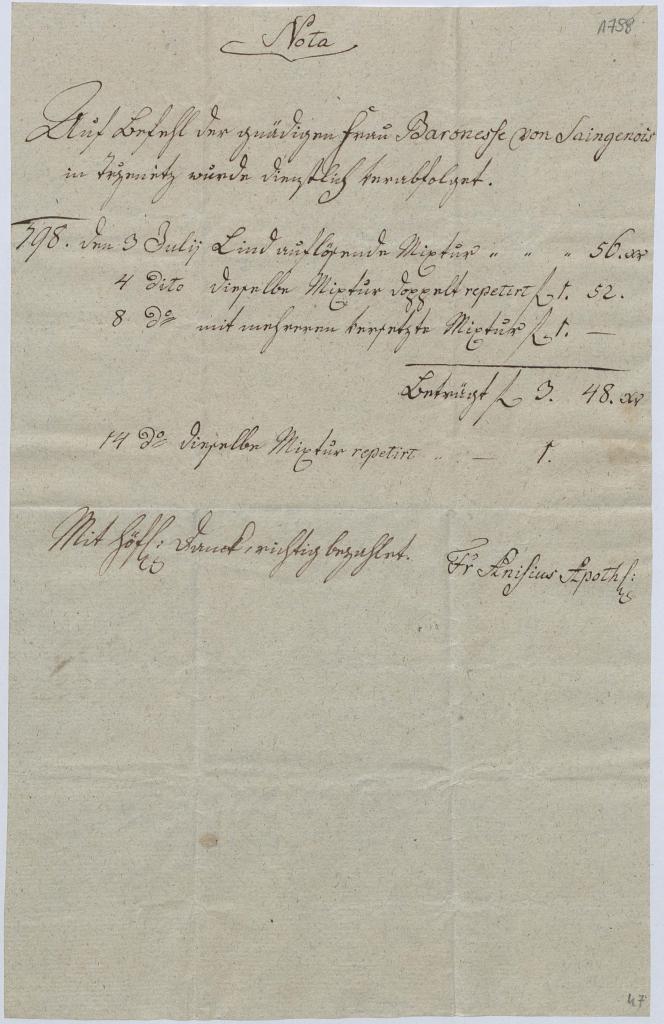 1798
Nota
Auf Befehl der gnädigen Frau Baronesse von Saingenois
in wurde dienstlich verabfolget.
798. den 3 Julij Lind auflösende Mixtur " " " 56. xr
4 dito dieselbe Mixtur doppelt repetirt f 1. 52.
8 do mit mehreren versetzte Mixtur f 1. —
Beträgt f 3. 48. xr
14 do dieselbe Mixtur repetirt " — 1.
Mit höfl: Danck, richtig bezahlet.
Fr Anisius Apoth:
47